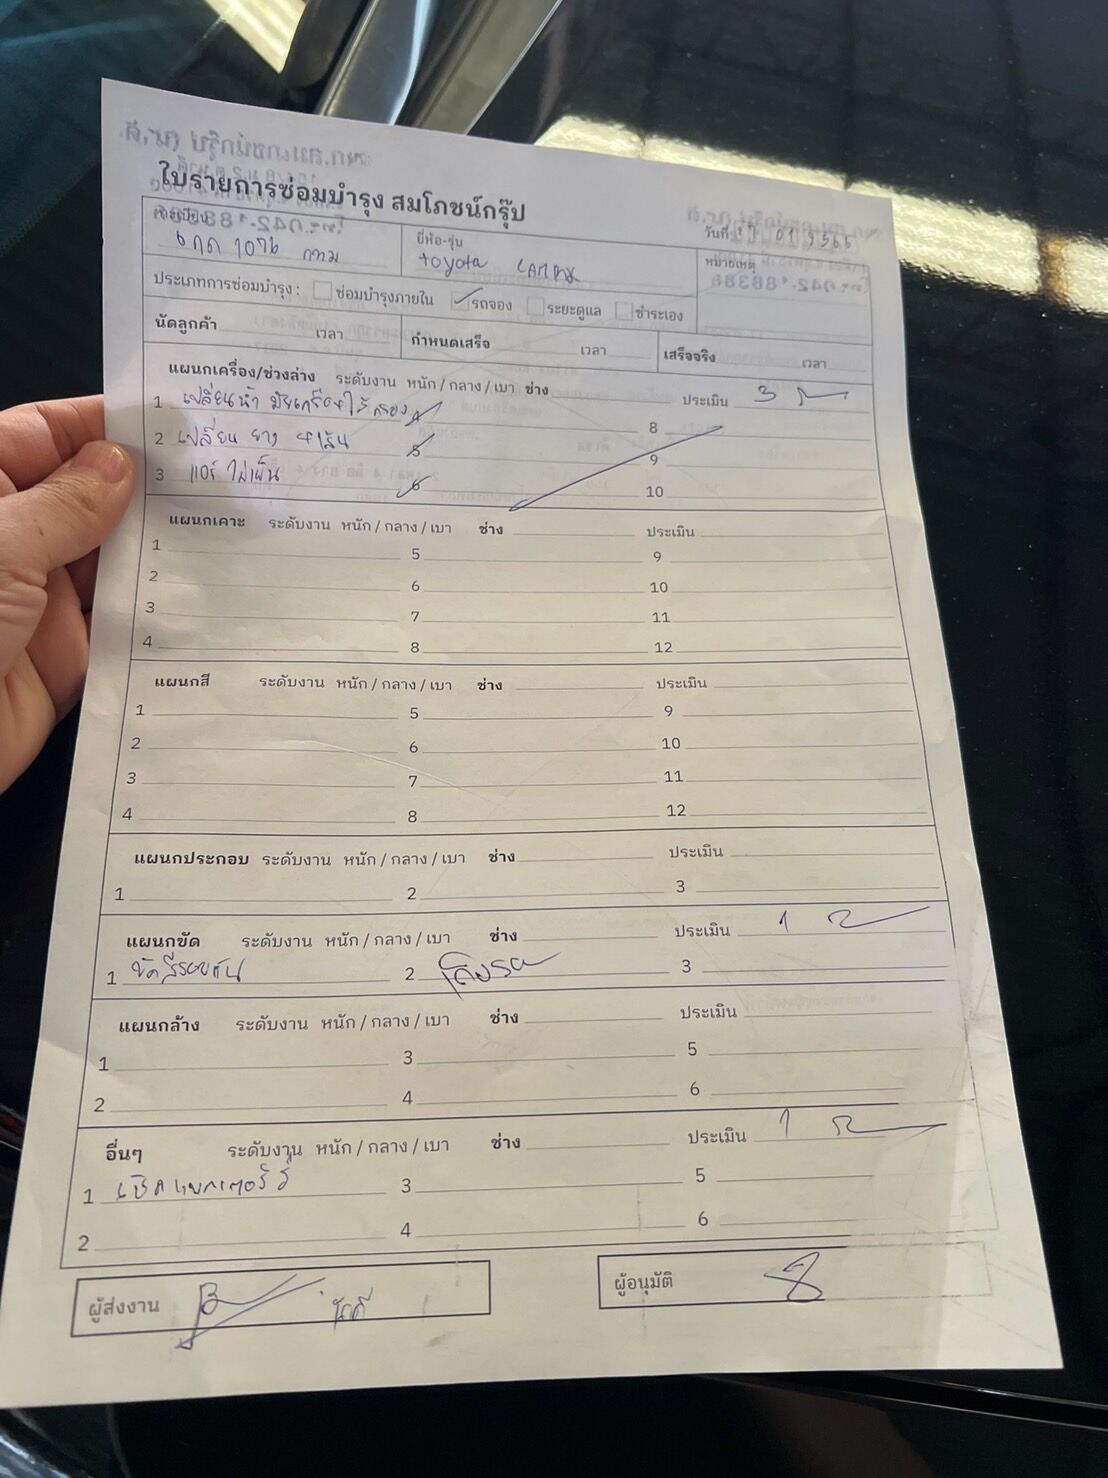 ใบรายการซ่อมบำรุง สมโภชน์กรุ๊ป
วันที่
ทะเบียน
6 กด 1076 กทม
ยี่ห้อ-รุ่น
toyota
หมายเหตุ
ประเภทการซ่อมบำรุง : ซ่อมบำรุงภายใน รถจอง ระยะดูแล ชำระเอง
นัดลูกค้า เวลา กำหนดเสร็จ เวลา เสร็จจริง เวลา
แผนกเครื่อง/ช่วงล่าง ระดับงาน หนัก / กลาง / เบา ช่าง ประเมิน 3
1 เปลี่ยนน้ำมันเครื่อง ไส้กรอง 4 8
2 เปลี่ยน ยาง 4 เส้น 5 9
3 แอร์ ไม่เย็น 6 10
แผนกเคาะ ระดับงาน หนัก / กลาง / เบา ช่าง ประเมิน
1 5 9
2 6 10
3 7 11
4 8 12
แผนกสี ระดับงาน หนัก / กลาง / เบา ช่าง ประเมิน
1 5 9
2 6 10
3 7 11
4 8 12
แผนกประกอบ ระดับงาน หนัก / กลาง / เบา ช่าง ประเมิน
1 2 3
แผนกขัด ระดับงาน หนัก / กลาง / เบา ช่าง ประเมิน 1
1 ขัดสีรอบคัน 2 3
แผนกล้าง ระดับงาน หนัก / กลาง / เบา ช่าง ประเมิน
1 3 5
2 4 6
อื่นๆ ระดับงาน หนัก / กลาง / เบา ช่าง ประเมิน 1
1 เช็คแบตเตอรี่ 3 5
2 4 6
ผู้ส่งงาน
ผู้อนุมัติ